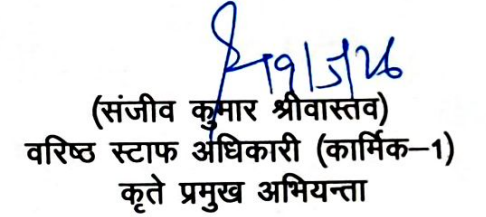 19/5/26
(संजीव कुमार श्रीवास्तव)
वरिष्ठ स्टाफ अधिकारी (कार्मिक–1)
कृते प्रमुख अभियन्ता